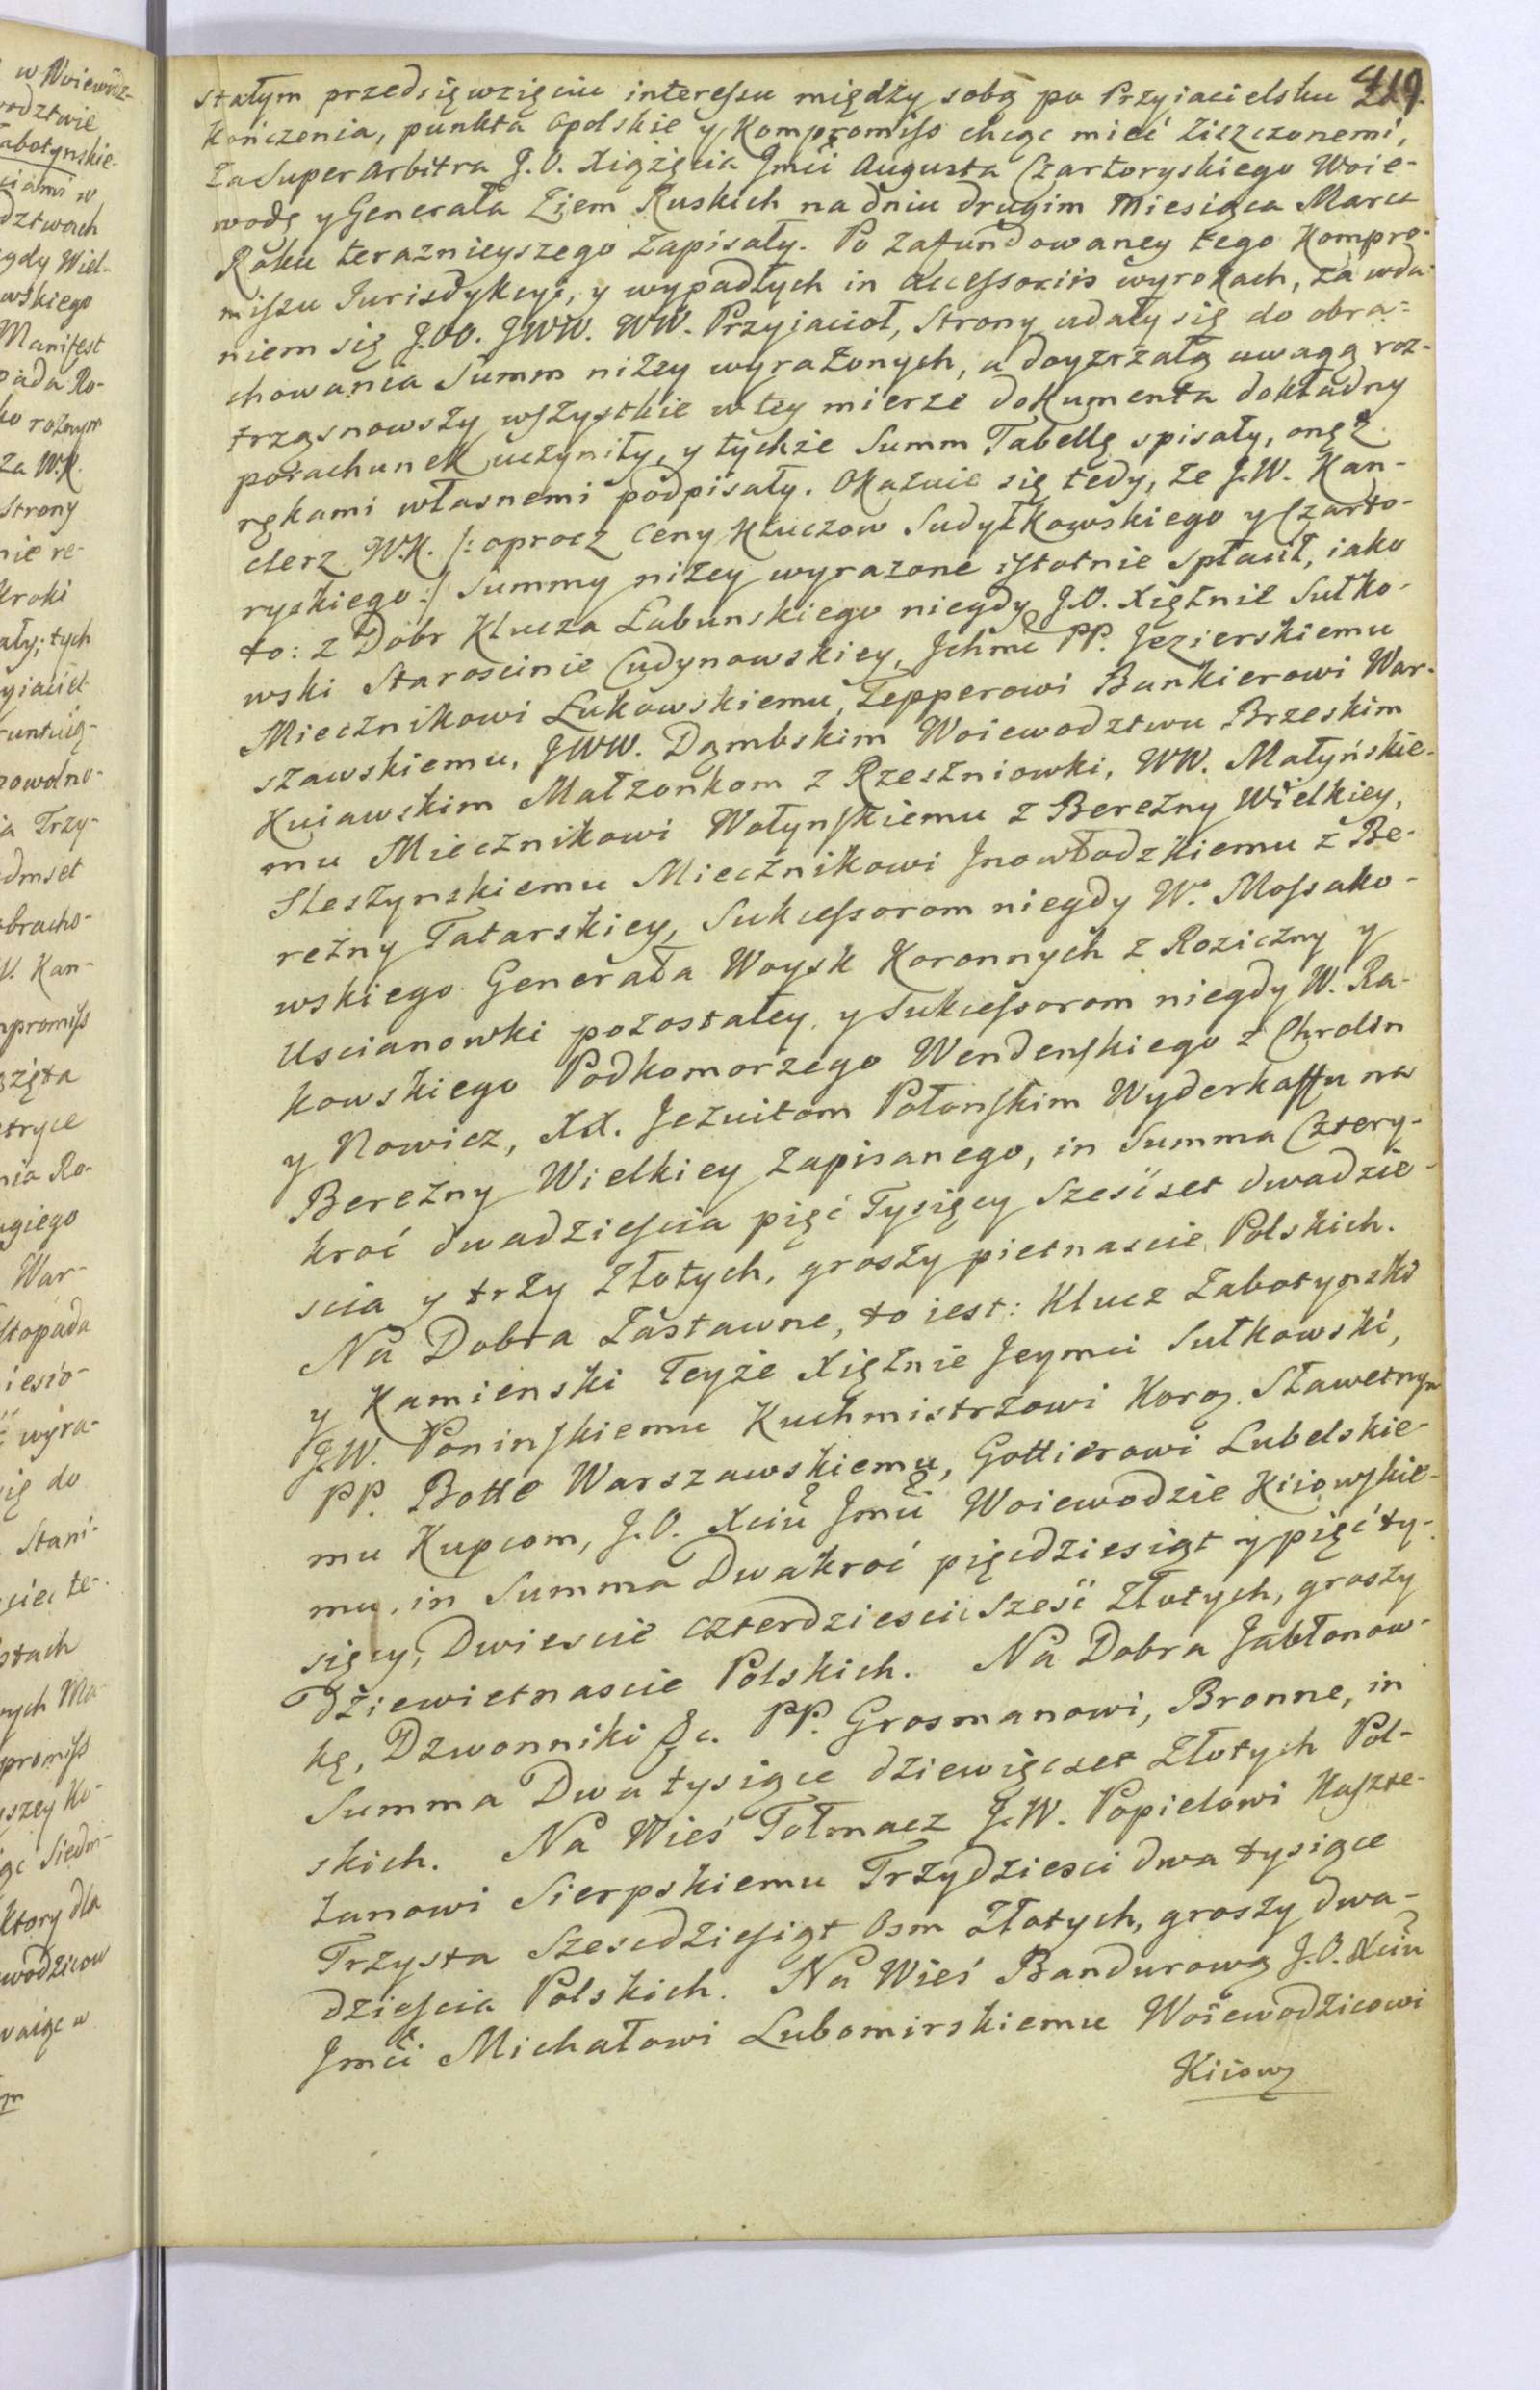 419.
stałym przedsięwzięciu interessu między sobą po Przyiacielsku
kończenia, punkta Opolskie y Kompromiss chcąc mieć ziszczonemi,
za Super Arbitra J. O. Xiążęcia Jmći Augusta Czartoryskiego Woie-
wodę y Generała Ziem Ruskich na dniu drugim Miesiąca Marca
Roku teraznieyszego zapisały. Po zafundowaney tego Kompro-
missu Jurisdykcyi, y wypadłych in accessoriis wyrokach, za wda-
niem się J.OO. JWW. WW. Przyiacioł, Strony udały się do obra-
chowania Summ niżey wyrażonych, a doyzrzałą uwagą roz-
trząsnowszy wszystkie w tey mierze dokumenta dokładny
porachunek uczyniły, y tychże Summ Tabellę spisały, onęż
rękami własnemi podpisały. Okazuie się tedy, że J.W. Kan-
clerz W.K. /: oprocz Ceny Kluczow Sudyłkowskiego y Czarto-
ryskiego :/ Summy niżey wyrażone istotnie spłacił, iako
to: z Dobr Klucza Łabunskiego niegdy J.O. Xiężnie Sułko-
wski Starościnie Cudynowskiey, Ichmć PP. Jezierskiemu
Miecznikowi Łukowskiemu, Tepperowi Bankierowi War-
szawskiemu, JWW. Dąmbskim Woiewodztwu Brzeskim
Kuiawskim Małżonkom z Rzeszniowki, WW. Małyńskie-
mu Miecznikowi Wołynskiemu z Bereżny Wielkiey,
Steszynskiemu Miecznikowi Jnowłodzkiemu z Be-
reżny Tatarskiey, Sukcessorom niegdy W. Mossako-
wskiego Generała Woysk Koronnych z Roziczny y
Uscianowki pozostałey, y Sukcessorom niegdy W. Ra-
kowskiego Podkomorzego Wendenskiego z Chrolin
y Nowicz, XX. Jezuitom Połonskim Wyderkaffu na
Bereżny Wielkiey zapisanego, in Summa Cztery-
kroć dwadziescia pięć Tysięcy Sześćset dwadzie-
scia y trzy Złotych, groszy pietnascie Polskich.
Na Dobra Zastawne, to iest: Klucz Zabotynski
y Kamienski Teyże Xiężnie Jeymci Sułkowski,
J.W. Poninskiemu Kuchmistrzowi Koro. Sławetnym
PP. Botte Warszawskiemu, Gottierowi Lubelskie-
mu Kupcom, J.O. Xciu Jmći Woiewodzie Kiiowskie-
mu, in Summa Dwakroć pięcdziesiąt y pięć ty-
sięcy, Dwiescie czterdziesci sześć Złotych, groszy
Dziewietnascie Polskich. Na Dobra Jabłonow-
kę, Dzwonniki &c. PP. Grosmanowi, Bronne, in
Summa Dwa tysiące dziewięcset Złotych Pol-
skich. Na Wieś Tołmacz J.W. Popielowi Kaszte-
lanowi Sierpskiemu Trzydziesci dwa tysiące
Trzysta Szescdziesiąt Osm Złotych, groszy dwa-
dziescia Polskich. Na Wieś Bandurową J.O. Xciu
Jmći Michałowi Lubomirskiemu Woiewodzicowi
Kiiow